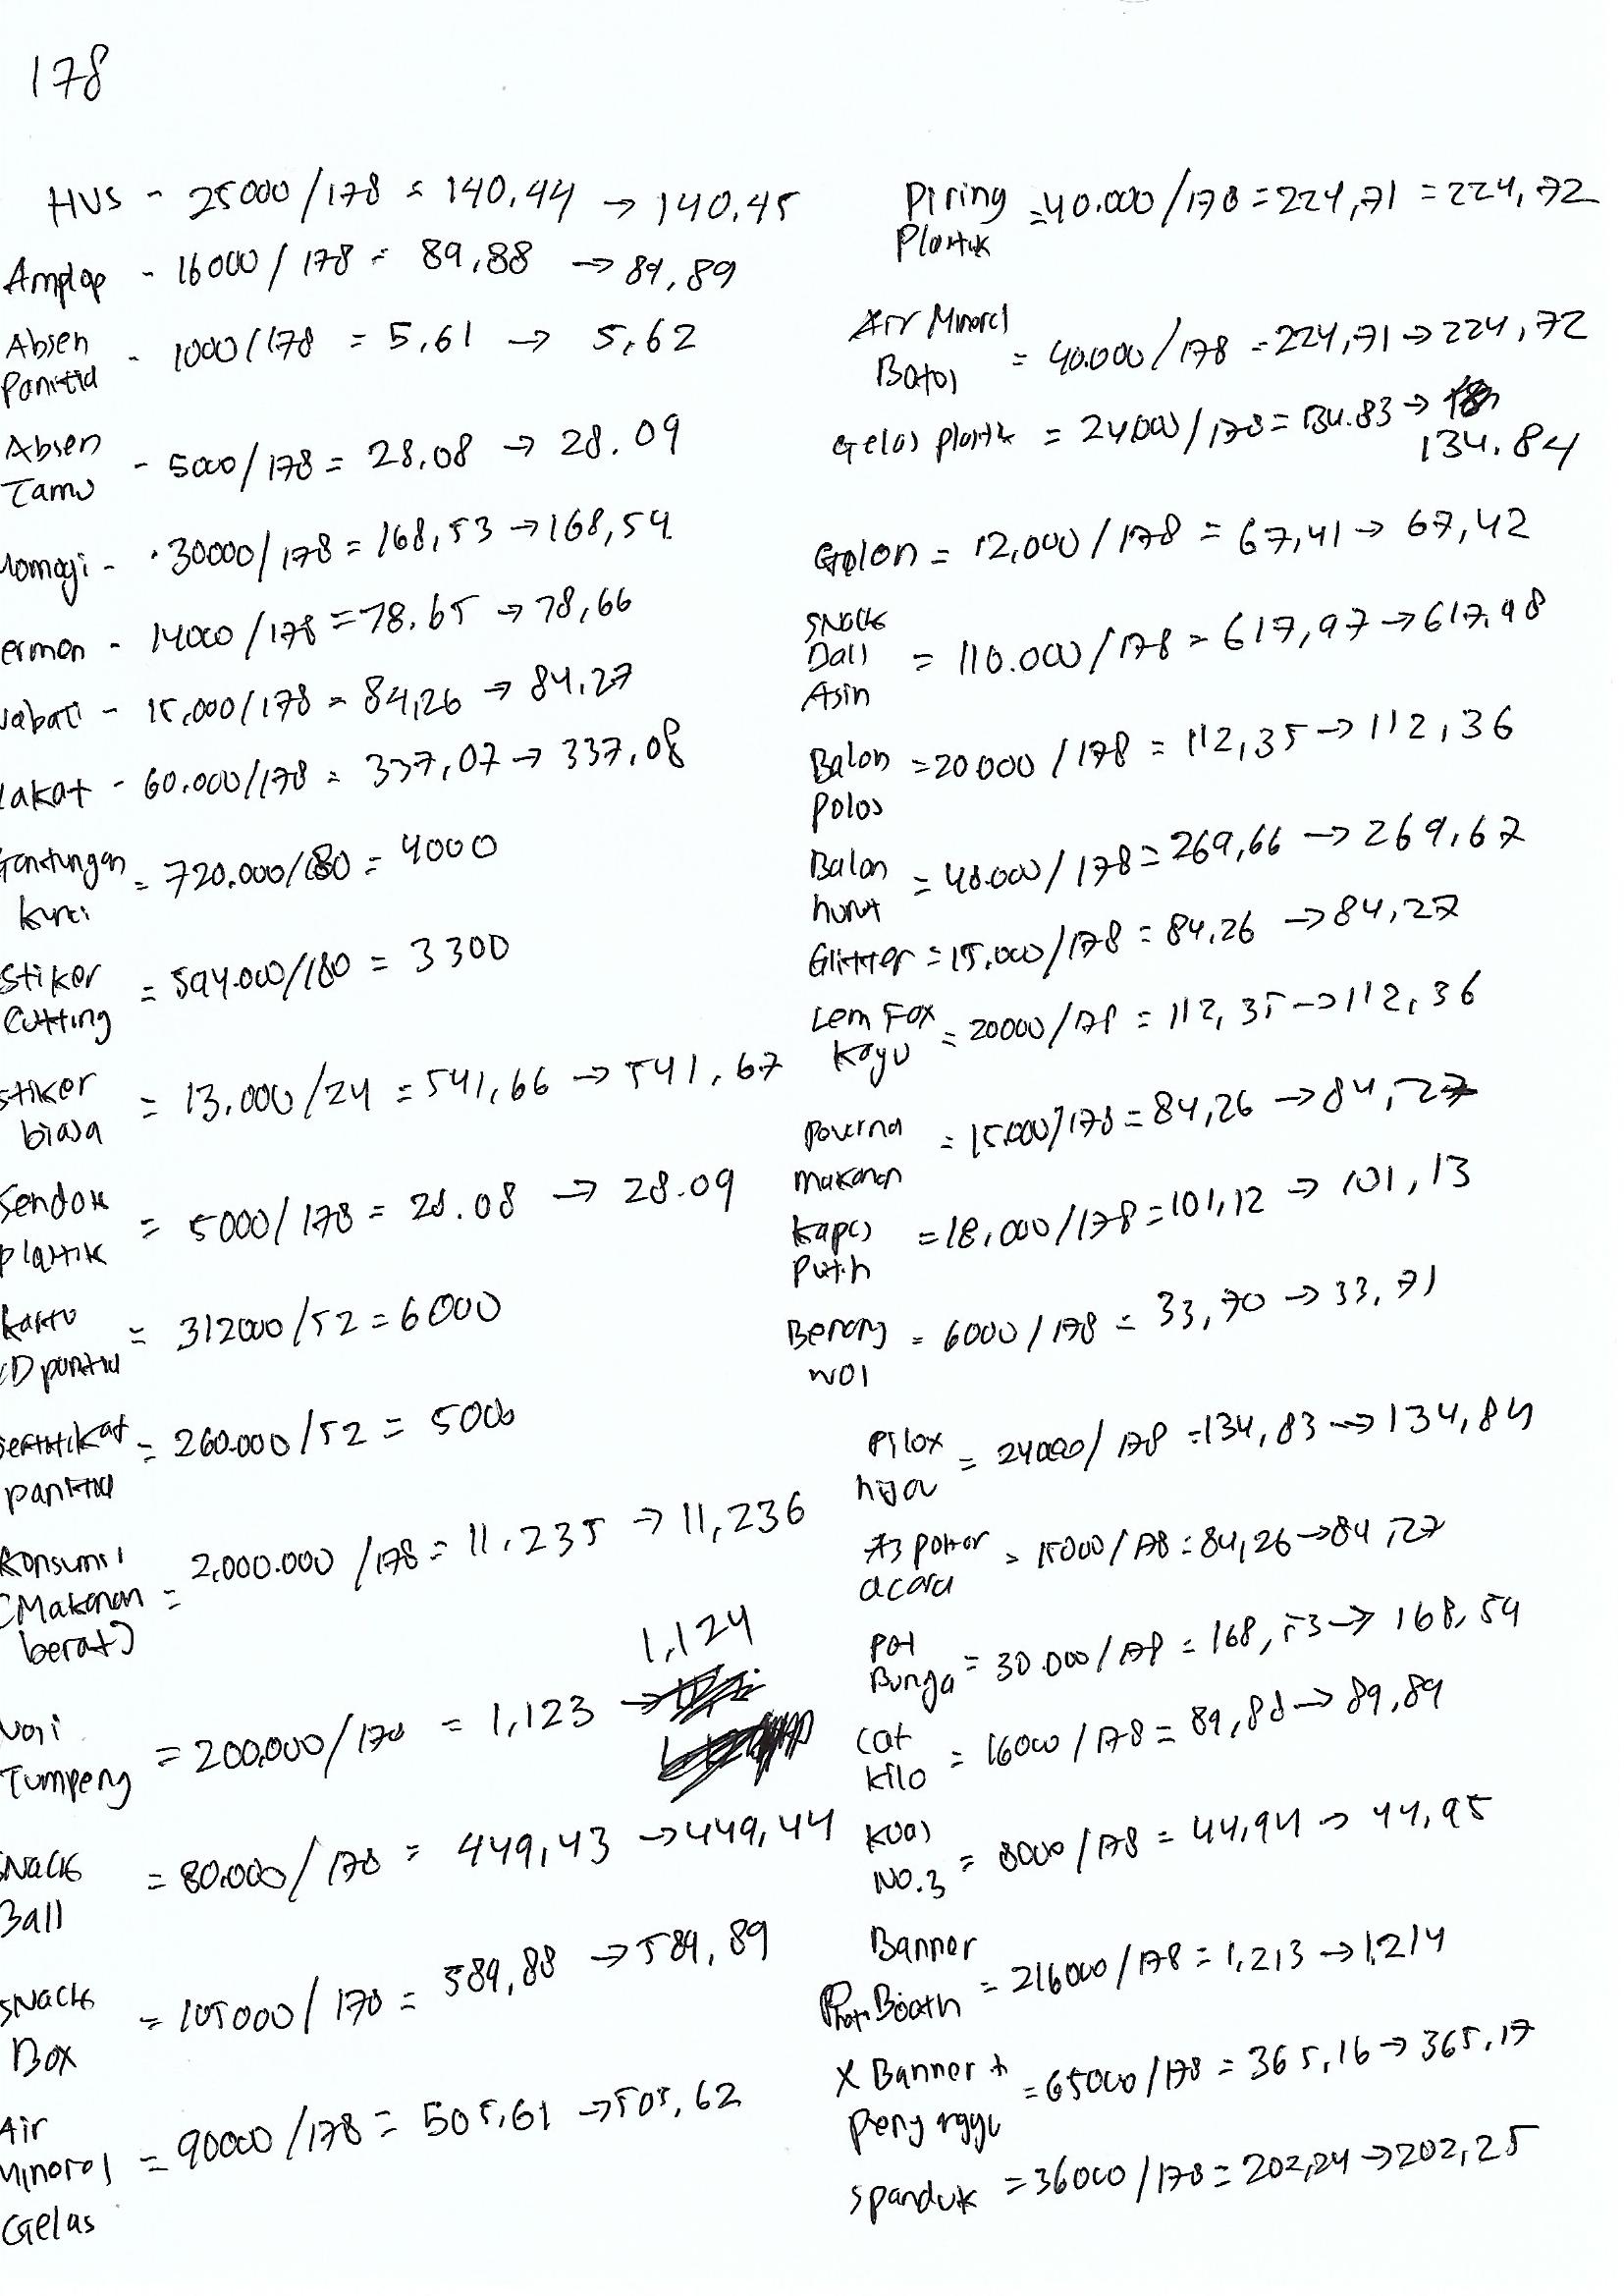 178
HVS - 25000/178 = 140,44 → 140,45
Amplop - 16000/178 = 89,88 → 89,89
Absen Panitia - 1000/178 = 5,61 → 5,62
Absen Tamu - 5000/178 = 28,08 → 28.09
Momogi - 30000/178 = 168,53 → 168,54
ermen - 14000/178 = 78,65 → 78,66
abati - 15,000/178 = 84,26 → 84,27
lakat - 60.000/178 = 337,07 → 337,08
Gantungan kunci = 720.000/180 = 4000
Stiker Cutting = 594.000/180 = 3300
stiker biasa = 13.000/24 = 541,66 → 541,67
Sendok plastik = 5000/178 = 28.08 → 28.09
kartu ID panitia = 312000/52 = 6000
sertifikat panitia = 260.000/52 = 5000
Konsumsi (Makanan berat) = 2,000.000/178 = 11,235 → 11,236
Nasi Tumpeng = 200,000/178 = 1,123 → 1,124
SNACK Ball = 80.000/178 = 449,43 → 449,44
SNACK Box = 105000/178 = 589,88 → 589,89
Air Minoral Gelas = 90000/178 = 505,61 → 505,62
Piring Plastik = 40.000/178 = 224,71 = 224,72
Air Minoral Botol = 40.000/178 = 224,71 → 224,72
Gelas plastik = 24000/178 = 134.83 → 134.84
Galon = 12,000/178 = 67,41 → 67,42
SNACK Ball Asin = 110.000/178 = 617,97 → 617,98
Balon Polos = 20000/178 = 112,35 → 112,36
Balon huruf = 48.000/178 = 269,66 → 269,67
Glitter = 15.000/178 = 84,26 → 84,27
Lem Fox Kayu = 20000/178 = 112,35 → 112,36
makanan = 15.000/178 = 84,26 → 84,27
kapas Putih = 18,000/178 = 101,12 → 101,13
Benang wol = 6000/178 = 33,70 → 33,71
Pilox hijau = 24000/178 = 134,83 → 134,84
A3 poster acara = 15000/178 = 84,26 → 84,27
Pot Bunga = 30.000/178 = 168,53 → 168,54
Cat kilo = 16000/178 = 89,88 → 89,89
Kuas No.3 = 8000/178 = 44,94 → 44,95
Banner Photo Booth = 216000/178 = 1,213 → 1,214
X Banner + Penyangga = 65000/178 = 365,16 → 365,17
spanduk = 36000/178 = 202,24 → 202,25